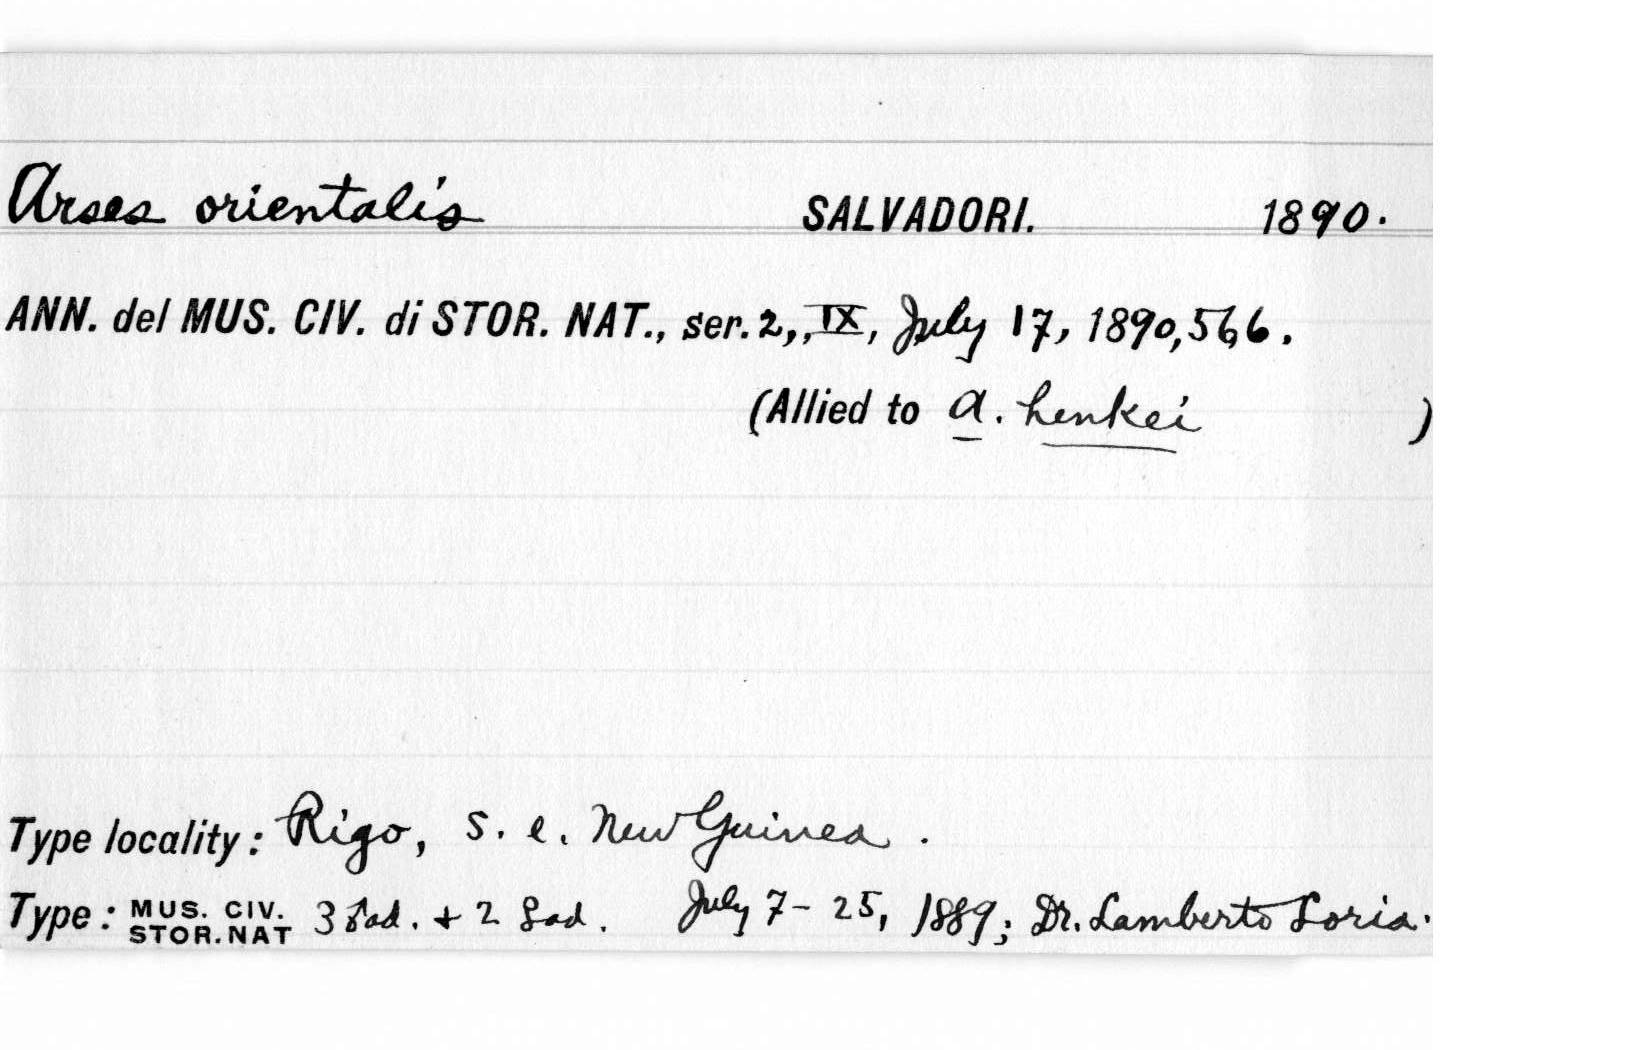 Arses orientalis SALVADORI. 1890.
ANN. del MUS. CIV. di STOR. NAT., ser. 2,, IX, July 17, 1890, 566.
(Allied to A. henkei )
Type locality: Rigo, s. e. New Guinea.
Type: MUS. CIV. STOR. NAT 3 ♂ ad. + 2 ♀ ad. July 7-25, 1889; Dr. Lamberto Loria.